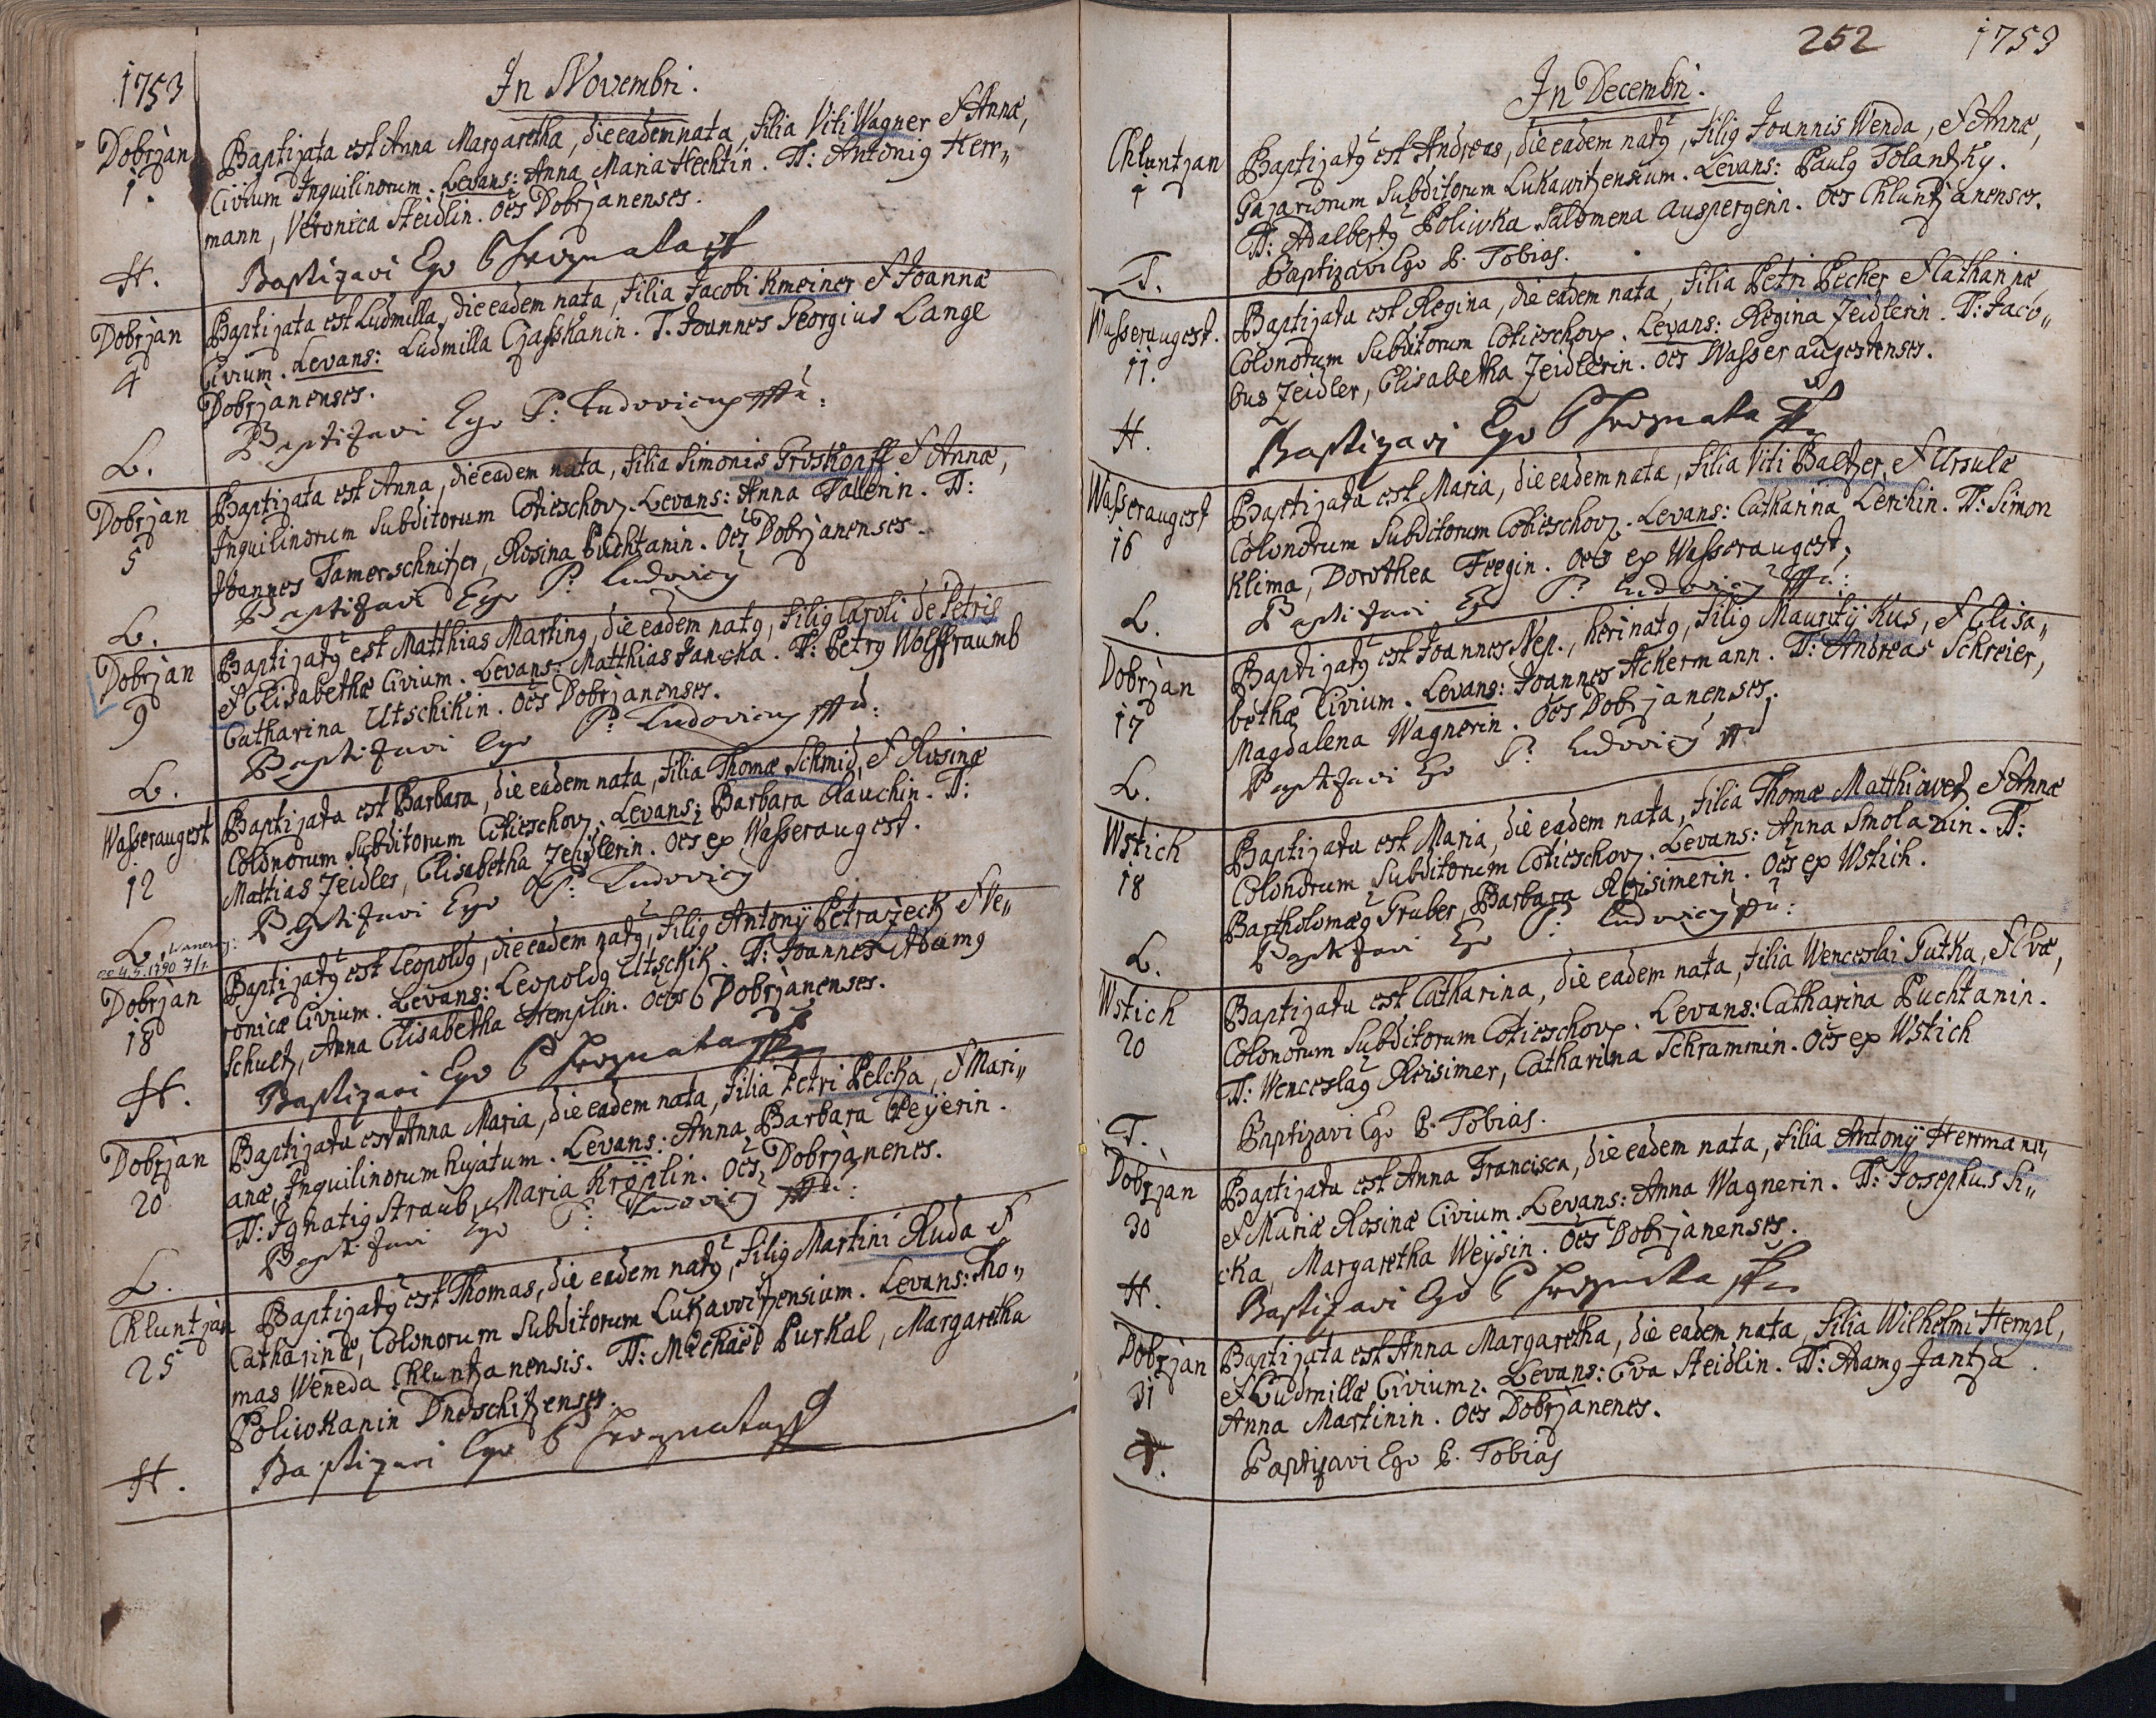 1753
In Novembri.
Dobrzàn
1.
Baptizata est Anna Margaretha, die eadem nata, filia Viti Wagner & Annæ,
Civium Inquilinorum. Levans: Anna Maria Hechtin. TT: Antonig Herr„
mann, Veronica Steidlin. Oẽs Dobrzanenses.
H.
Baptizavi Ego P Hroznata
Dobrzàn
4
Baptizata est Ludmilla, die eadem nata, filia Jacobi Kmeiner & Joannæ
Civium. Levans: Ludmilla T. Joannes Georgius Lange
Dobrzanenses.
L.
Baptizavi Ego P: Ludovicus
Dobrzan
5
Baptizata est Anna, die eadem nata, filia Simonis Groskopff & Annæ,
Inquilinorum Subditorum Cotieschov. Levans: Anna TT:
Joannes Tamerschnitzer, Rosina Puchtanin. Oẽs Dobrzanenses.
L.
Baptizavi Ego P: Ludovicg
Dobrzàn
9
Baptizatg est Matthias Marting, die eadem natg, filig Caroli de Petris
& Elisabethæ Civium. Levans: Matthias Jancka. TT: Petrg Wolffraumb
Catharina Utschikin. Oẽs Dobrzanenses.
L.
Baptizavi Ego P: Ludovicus
Wasseraugest
12
Baptizata est Barbara, die eadem nata, filia Thomæ Schmid, & Rosinæ
Colonorum Subditorum Cotieschov. Levans: Barbara Rauchin. TT:
Mattias Zeidler, Elisabetha Zeidlerin. Oẽs ex Wasseraugest.
L.
Baptizavi Ego P: Ludovicg
4.5.1790
Dobrzàn
18
Baptizatg est Leopoldg, die eadem natg, filig Antonÿ Petrazeck & Ve„
ronicæ Civium. Levans: Leopoldg Utschik. TT: Joannes Adamg
Schultz, Anna Elisabetha Hemplin. Oẽs Dobrzànenses.
H.
Baptizavi Ego P Hroznata
Dobrzàn
20
Baptizata est Anna Maria, die eadem nata, filia Petri Pelcka, & Mari„
anæ, Inquilinorum hujatum. Levans: Anna Barbara Peÿerin.
TT: Ignatig Straub, Maria Kröplin. Oẽs Dobrzànenes.
L.
Baptizavi Ego P: Ludovicg
Chluntzàn
25
Baptizatg est Thomas, die eadem natg, filig Martini Ruda &
Catharinæ, Colonorum Subditorum Lukawitzensium. Levans: Tho„
mas Weneda Chluntzanensis. TT: Michael Purkal, Margaretha
Poliwkanin Dneschitzenses.
H.
Baptizavi Ego P Hroznata
252 1753
In Decembri.
Chluntzan
Baptizatg est Andreas, die eadem natg, filig Joannis Wenda, & Annæ,
Gazariorum Subditorum Lukawitzensium. Levans: Paulg Tolantzky.
TT: Adalbertg Poliwka Salomena Auspergerin. Oẽs Chluntzanenses.
T.
Baptizavi Ego P. Tobias.
Wasseraugest.
11.
Baptizata est Regina, die eadem nata, filia Petri Pecher & Catharinæ
Colonorum Subditorum Cotieschov. Levans: Regina Zeidlerin. TT: Jaco„
bus Zeidler, Elisabetha Zeidlerin. Oẽs Wasseraugestenses.
H.
Baptizavi Ego P Hroznata
Wasseraugest
16
Baptizata est Maria, die eadem nata, filia Viti Baltzer, & Ursulæ
Colonorum Subditorum Cotieschov. Levans: Catharina Lerchin. TT: Simon
Klima, Dorothea Fregin. Oẽs ex Wasseraugest,
L.
Baptizavi Ego P: Ludovicg
Dobrzàn
17
Baptizatg est Joannes Nep., heri natg, filig Mauritÿ Kus, & Elisa„
bethæ Civium. Levans: Joannes Ackermann. TT: Andreas Schreier,
Magdalena Wagnerin. Oẽs Dobrzanenses.
L.
Baptizavi Ego P: Ludovicg
Wstich
18
Baptizata est Maria, die eadem nata, filia Thomæ Matthiowetz & Annæ
Colonorum Subditorum Cotieschov. Levans: Anna Smolanin. TT:
Bartholomæg Gruber, Barbara Reisimerin. Oẽs ex Wstich.
L.
Baptizavi Ego P: Ludovicg
Wstich
20
Baptizata est Catharina, die eadem nata, filia Wenceslai Tutka, & Evæ,
Colonorum Subditorum Cotieschov. Levans: Catharina Puchtanin.
TT: Wenceslag Reisimer, Catharina Schrammin. Oẽs ex Wstich
T.
Baptizavi Ego P. Tobias.
Dobrzan
30
Baptizata est Anna Francisca, die eadem nata, filia Antonÿ Herrmann,
& Mariæ Rosinæ Civium. Levans: Anna Wagnerin. TT: Josephus
cka, Margaretha Weysin. Oẽs Dobrzanenses.
H.
Baptizavi Ego P Hroznata
Dobrzàn
31
Baptizata est Anna Margaretha, die eadem nata, filia Wilhelmi Hempl,
& Ludmillæ Civium. Levans: Eva Steidlin. TT: Adamg Jantza.
Anna Martinin. Oẽs Dobrzànenes.
T.
Baptizavi Ego P. Tobias